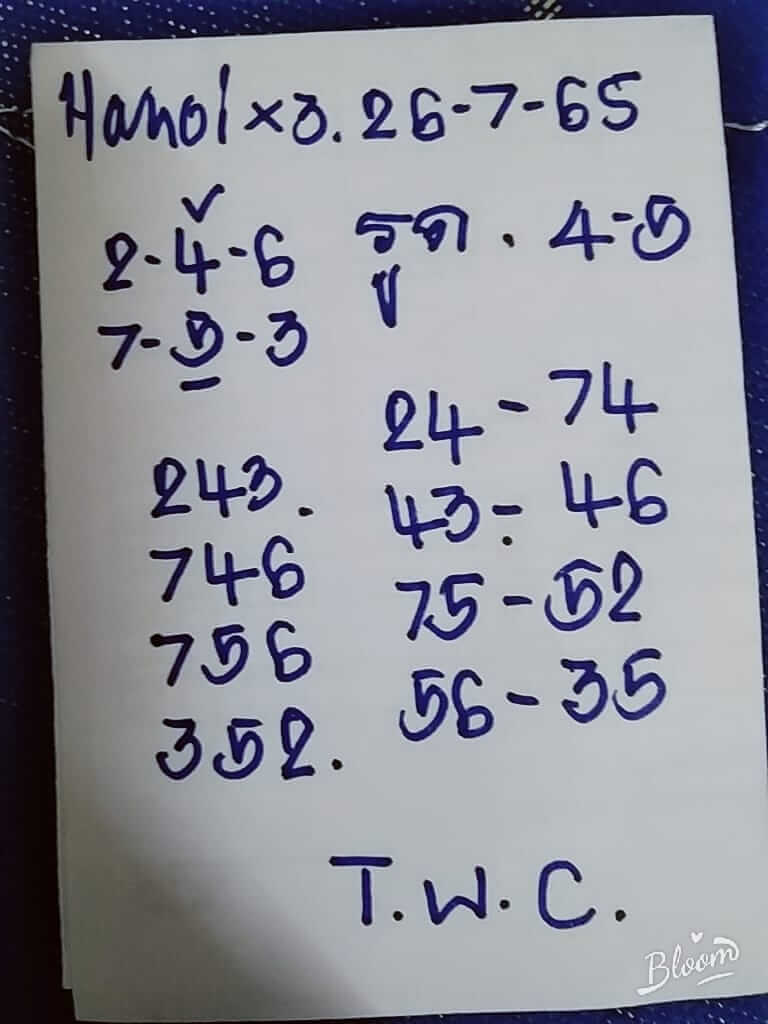 Hanoi x3. 26-7-65
2-4-6 รูด. 4-5
7-5-3
24-74
243. 43-46
746 75-52
756 56-35
352.
T.W.C.
Bloom